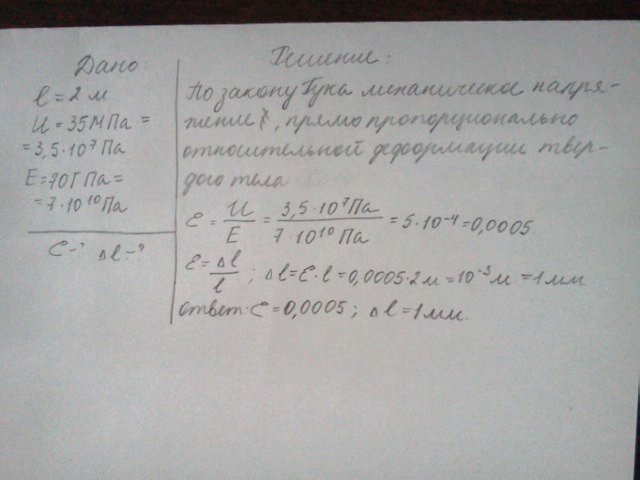 Дано:
l = 2 м
U = 35 МПа =
= 3,5·10⁷Па
E = 70 ГПа =
= 7·10¹⁰Па
ε - ? Δl - ?
Решение:
По закону Гука механическое напря-
жение, прямо пропорционально
относительной деформации твер-
дого тела
ε = U/E = 3,5·10⁷Па/7·10¹⁰Па = 5·10⁻⁴ = 0,0005
ε = Δl/l ; Δl = ε·l = 0,0005·2м = 10⁻³м = 1мм
ответ: ε = 0,0005 ; Δl = 1мм.